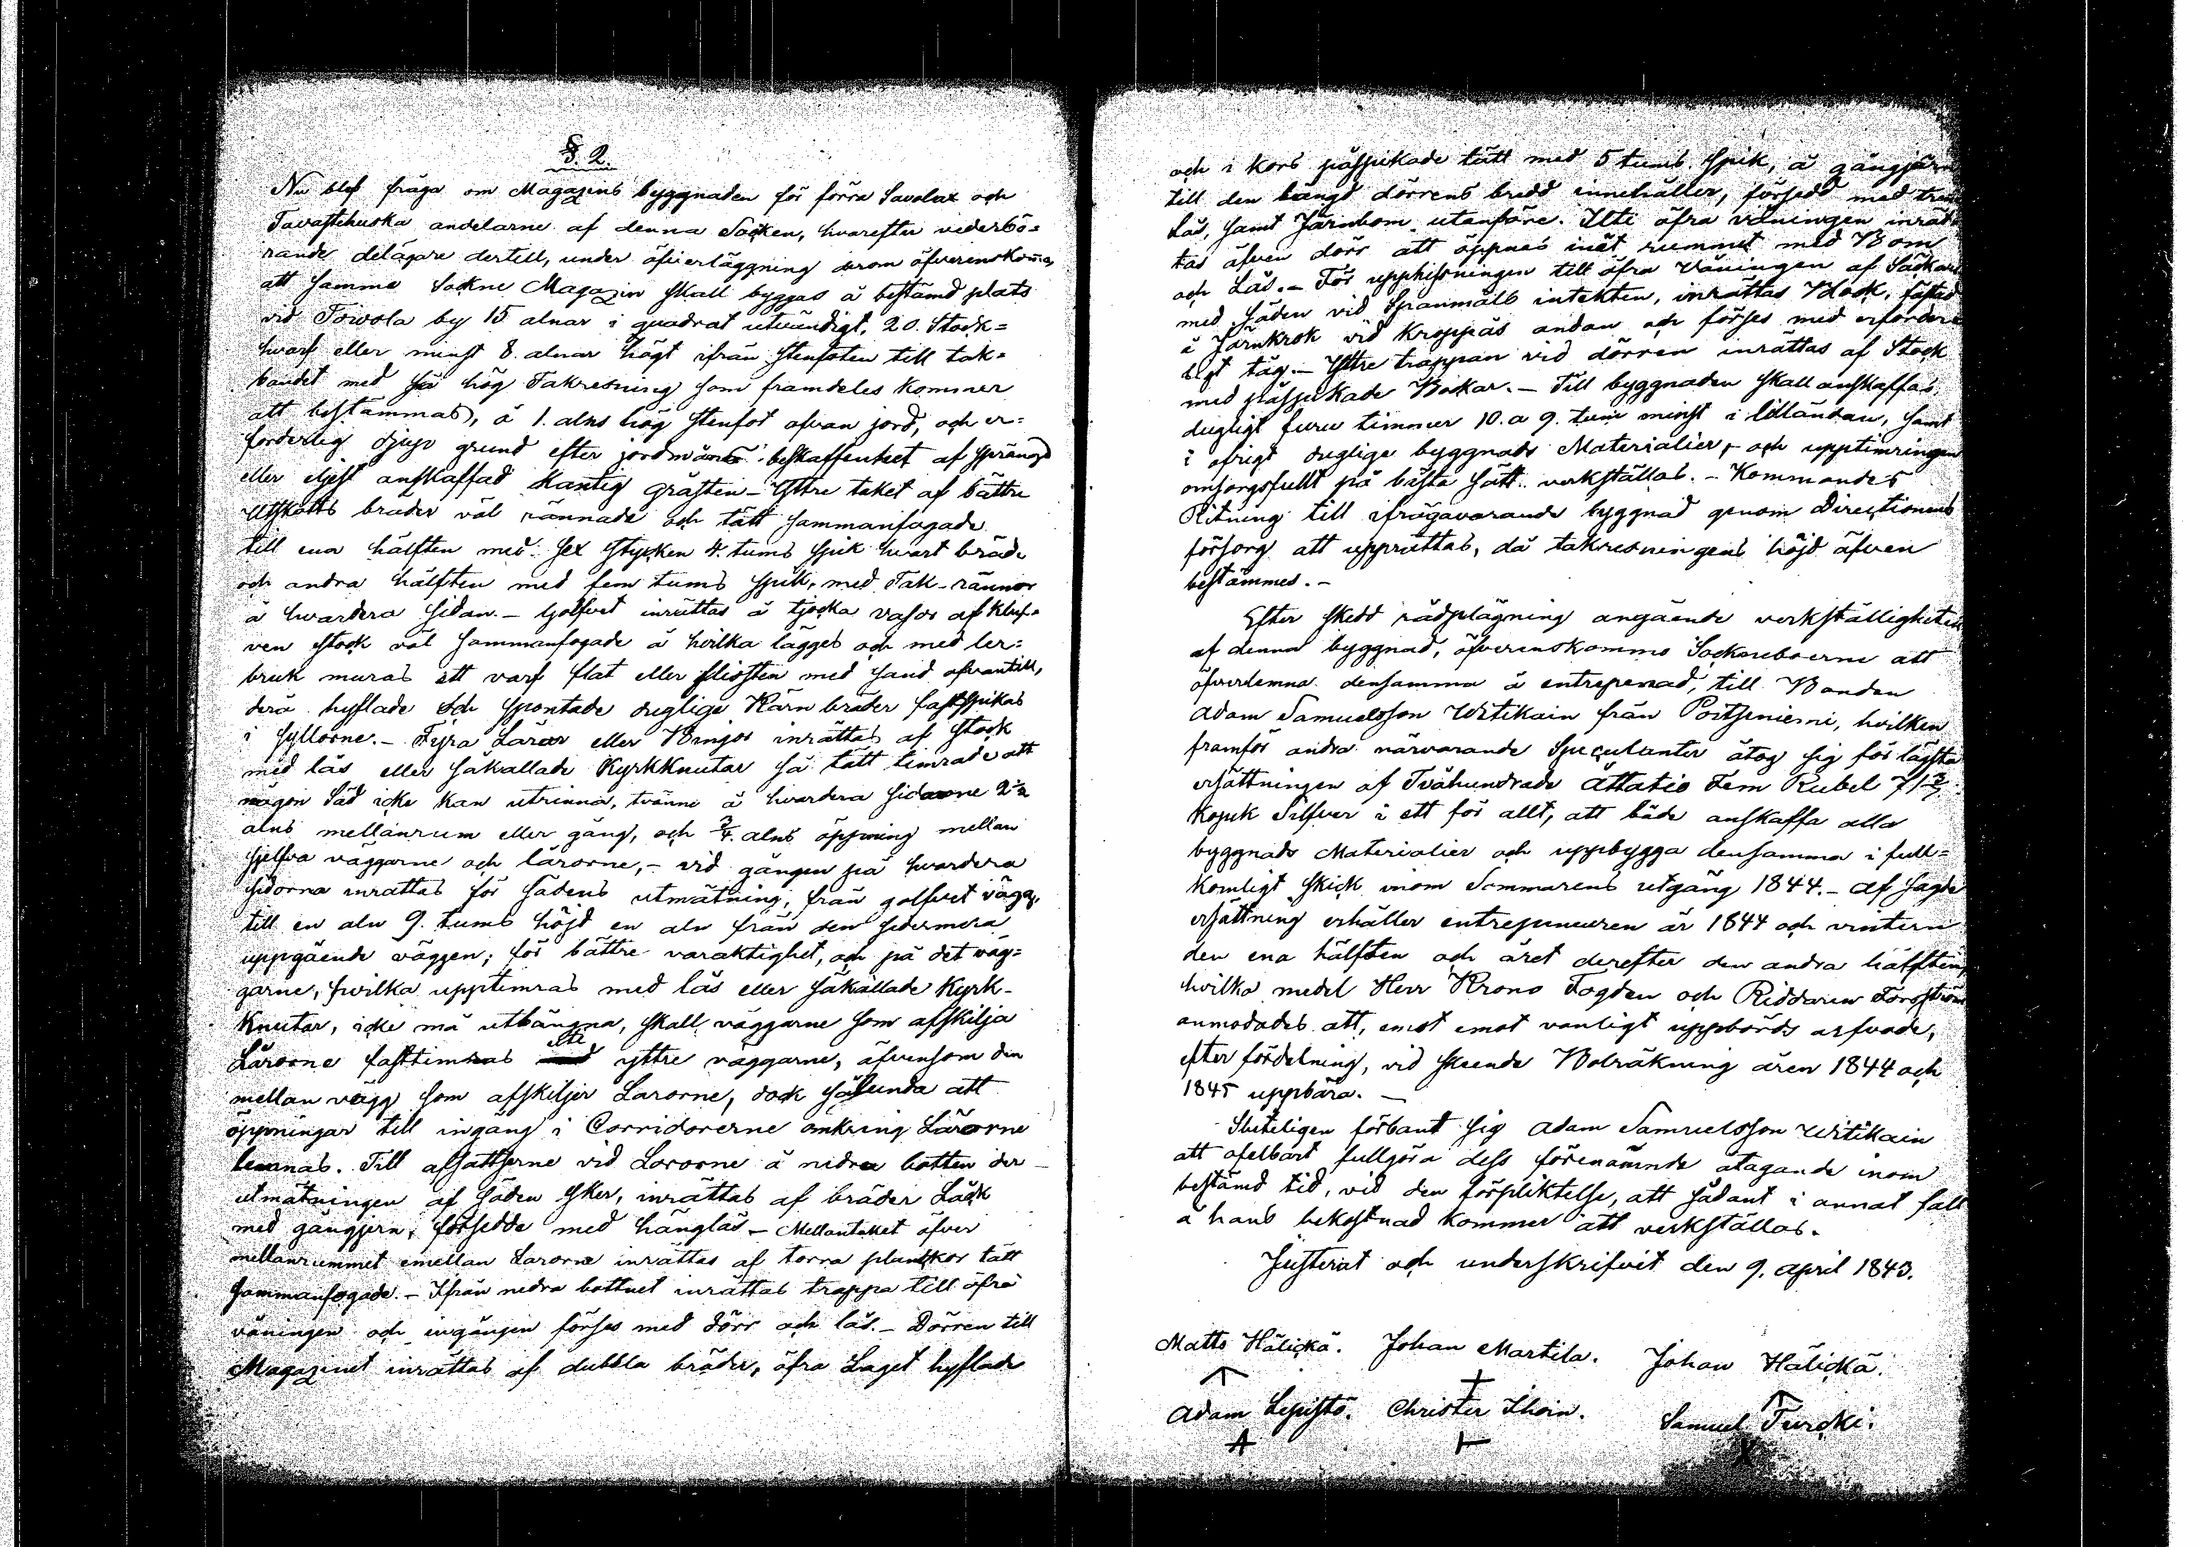 §. 2.
Nu blef fråga om Magazins byggnaden för förra Savolax och
Tavastehuska andelarne af denna Socken, hvarefter vederbö=
rande delägare dertill, under öfverläggning derom öfverenskomma,
att samma Sockne Magazin skall byggas å bestämd plats
vid Toivola by 15 alnar i quadrat utvändigt, 20. Stock=
hvarf eller minst 8. alnar högt ifrån stenfoten till tak=
bandet med så hög Takresning som framdeles kommer
att bestämmas, å 1. alns hög stenfot ofvan jord, och er=
forderlig djup grund efter jordmåns beskaffenhet af sprängd
eller eljest anskaffad Kantig gråsten - Yttre taket af bättre
Utskotts bräder väl rännade och tätt sammanfogade
till ena hälften med sex stycken 4. tums spik hvart bräde
och andra hälften med fem tums spik, med Tak-rännor
å hvardera sidan. - Golfvet inrättas å tjocka vasor af kluf=
ven stock väl sammanfogade å hvilka lägges och med ler=
bruk muras ett varf flat eller flisten med sand ofvantill,
derå hyflade och spontade duglige Kärn bräder fastspikas
i syllorne. - Fyra Lårar eller Bingor inrättas af stock
med lås eller såkallade Kyrkknutar så tätt timrade att
någon Säd icke kan utrinna, tvänne å hvardera sidorne 2½
alns mellanrum eller gång, och ¾. alns öppning mellan
sjelfva väggarne och lårorne, - vid gången på hvardera
sidorna inrättas för Sädens utmätning, från golfvet vägg,
till en aln 9. tums höjd en aln från den sidermera
uppgående väggen; för bättre varaktighet, och på det väg=
garne, hvilka upptimras med lås eller såkallade Kyrk-
Knutar, icke må utbängna, skall väggarne som afskilja
Lårorne fasttimras uti yttre väggarne, äfvensom den
mellan vägg som afskiljer Lårorne, dock sålunda att
öppningar till ingång i Corridorerne omkring Lårorne
lemnas. Till afsattserne vid Lårorne å nedra botten der
utmätningen af Säden sker, inrättas af bräder Låck
med gångjern, försedde med hänglås - Mellantaket öfver
mellanrummet emellan Lårorne inrättas af torra plankor tätt
sammanfogade. - Ifrån nedra bottnet inrättas trappa till öfra
våningen och ingången förses med dörr och lås. - Dörren till
Magazinet inrättas af dubbla bräder, öfra Laget hyflade
och i kors påspikade tätt med 5 tums spik, å gångjärn
till den längd dörrens bredd innehåller, försedd med
Lås, samt Järnbom utanföre. Uti öfra våningen inrät-
tas äfven dörr att öppnas inåt rummet med Bom
och Lås. - För upphissningen till öfra Våningen af Säckar
med Säden vid Spanmåls intekten, inrättas Block, fästad
å Järnkrok vid Kroppås andan och förses med erforder-
ligt tåg. - Yttre trappan vid dörren inrättas af Stock
med påspikade Backar. - Till byggnaden skall anskaffas
dugligt furu timmer 10. a 9. tum minst i lilländan, samt
i öfrigt duglige byggnads Materialier, och upptimringen
omsorgsfullt på bästa sätt verkställas. - Kommandes
Ritning till ifrågavarande byggnad genom Directionens
försorg att upprättas, då takresningens höjd äfven
bestämmes. -
Efter skedd rådplägning angående verkställigheten
af denna byggnad, öfverenskommo Sockneboerne att
öfverlemna densamma å entrepenad, till Bonden
Adam Samuelsson Utitikain från Portsniemi, hvilken
framför andra närvarande Speculanter åtog sig för lägsta
ersättningen af Tvåhundrade Åttatio Fem Rubel 71 3/7
Kopek Silfver i ett för allt, att både anskaffa alla
byggnads Materialier och uppbygga densamma i full=
komligt skick inom Sommarens utgång 1844. - Af sagde
ersättning erhåller entrepeneuren år 1844 och vintern
den ena hälften och året derefter den andra hälften,
hvilka medel Herr Krono Fogden och Riddaren Forsström
anmodades att, emot emot vanligt uppbörds arfvode,
efter fördelning, vid skeende Bolräkning åren 1844 och
1845 uppbära. -
Sluteligen förbant sig Adam Samuelsson Utitikain
att ofelbart fullgöra dess förenämnde åtagande inom
bestämd tid, vid den förpliktelse, att sådant i annat fall
å hans bekostnad kommer att verkställas.
Justerat och underskrifvit den 9. april 1843.
Matts Hälickä. Johan Martila. Johan Hälickä.
Adam Lepistö. Christer Ihoin. Samuel Turcki.